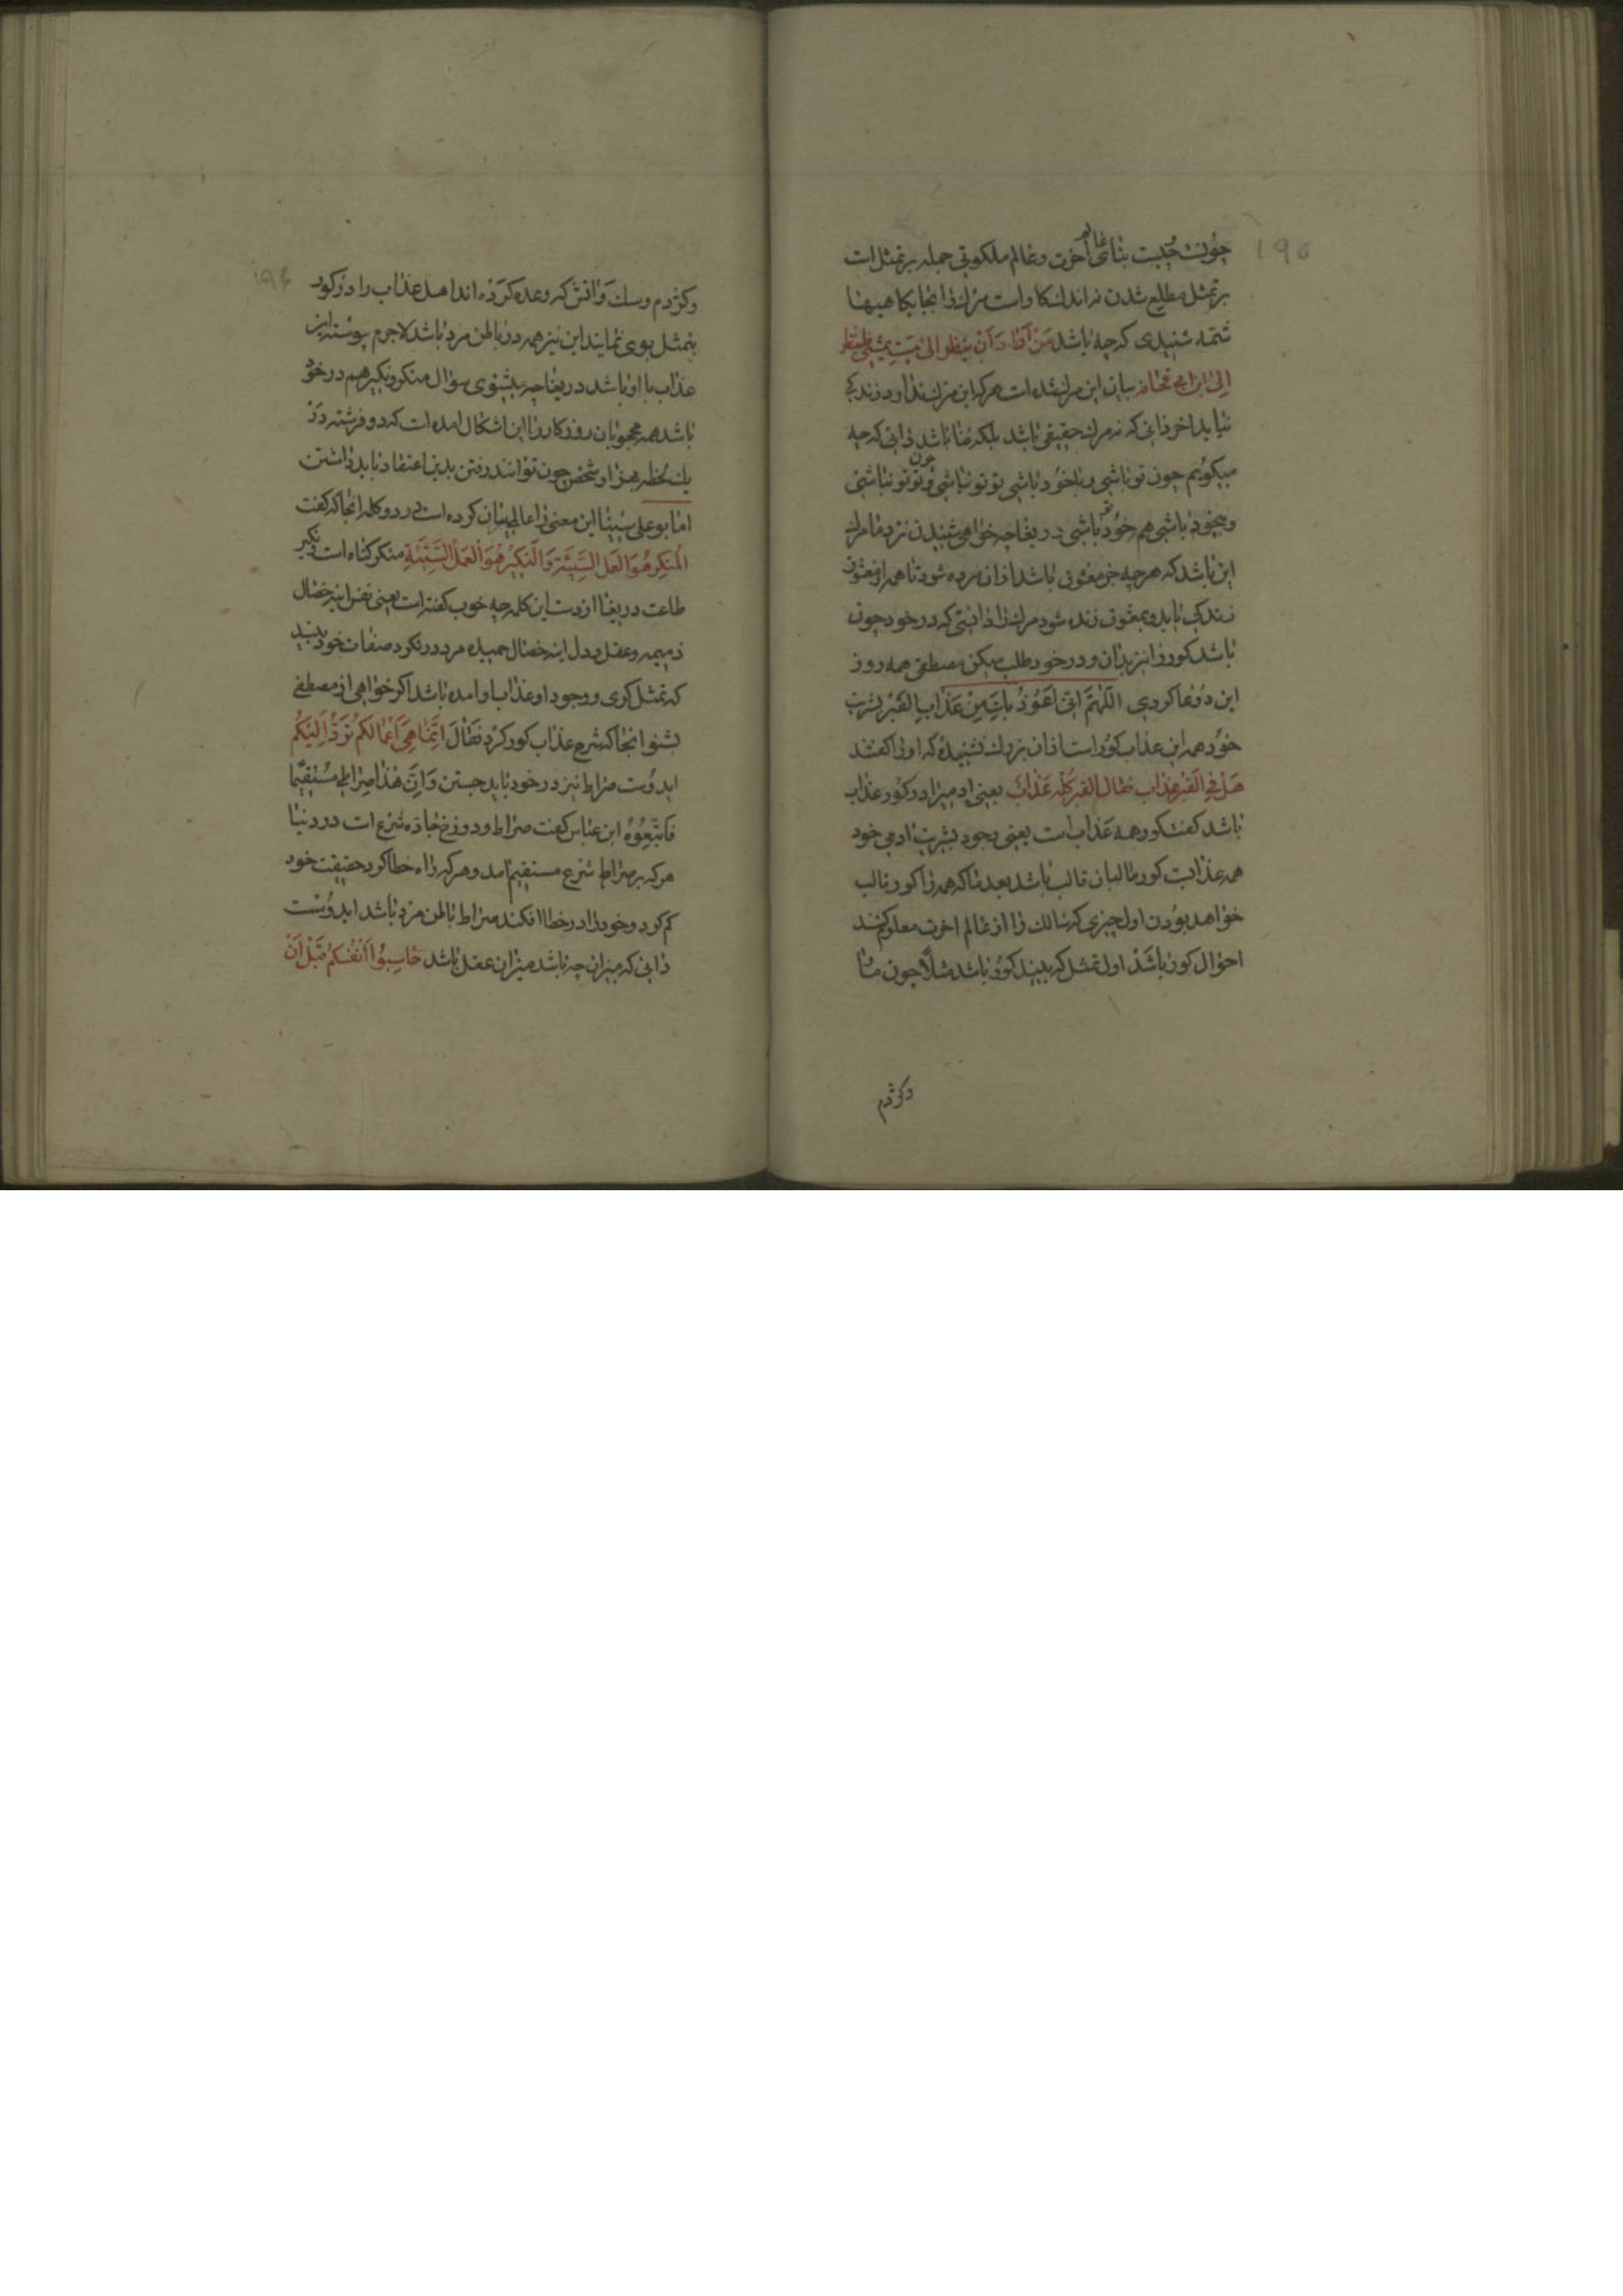 ۱۹۵
چونست چیست بنای عالم آخرت و عالم ملکوتی جمله بر تمثل است
بر تمثل مطلع شدن نه اندک کار است مرک را اینجا بکاهیها
تتمه شنیدی که چه باشد مَن اَرادَ اَن ینظر الی میّت یمشی فلینظر
الی ابن ابی قحافه بیان این مرک شده است هرکه این مرک ندارد زندکی
نیابد اخر دانی که نه مرک حقیقی باشد بلکه فنا باشد دانی که چه
میکویم چون تو باشی و باخود باشی تو تو نباشی و چون تو تو نباشی
و بیخود باشی هم خود تو باشی دریغا چه خواهی شنیدن نزد ما مرک
این باشد که هرچه جز معشوق باشد از ان مرده شود تا هم از معشوق
زندکی یابد و بمعشوق زنده شود مرک را دانستی که در خود چون
باشد کور را نیز بدان و در خود طلب میکن مصطفی همه روز
این دعا کردی اللّهمّ انی اَعوُذُ بِكَ مِن عَذابِ القَبر بشریت
خود همه این عذاب کور است از ان بزرک نشنیدهٔ که او را کفتند
هَل فِی القَبر عذاب فقال القبر کلّه عَذابٌ یعنی ادمی را در کور عذاب
باشد کفت کور همه عَذاب است یعنی وجود بشریت ادمی خود
همه عذابست کور طالبان قالب باشد بعد ما که همه را کور قالب
خواهد بودن اول چیزی که سالک را از عالم اخرت معلوم کنند
احوال کور باشد اول تمثل که بیند کور باشد مثلاً چون مار
وکژدم
وکژدم و سک و اتش که وعده کرده اند اهل عذاب را در کور
بتمثل بوی نمایند این نیز همه در باطن مرد باشد لاجرم پیوسته این
عذاب با او باشد دریغا چه بشنوی سؤال منکر و نکیر هم در خود
باشد همه محجوبان روزکار را این اشکال امده است که دو فرشته در
یک لحظه بهزار شخص چون توانند رفتن بدین اعتقاد باید داشتن
اما بوعلی سینا این معنی را عالی بیان کرده است در دو کلمه انجا که کفت
المُنکِر هُوَ العَمل السَّیِّئَة وَ النَّکِیرُ هُوَ العَملُ السَّیِّئَةِ منکر کناه است و نکیر
طاعت دریغا از دست این کلمه چه خوب کفته است یعنی نفس اینه خصال
ذمیمه و عقل و دل اینه خصال حمیده مرد در نکرد صفات خود بیند
که تمثل کری و وجود او عذاب او امده باشد اکر خواهی از مصطفی
بشنو انجا که شرح عذاب کور کرد فقالَ اِنَّما هِیَ اَعمالکُم تُرَدُّ اِلَیکُم
ایدوست صراط نیز در خود باید جستن وَ اَنَّ هٰذا صِراطِی مُستَقِیمًا
فاتَّبِعُوهُ ابن عباس کفت صراط و دوزخ جادهٔ شرع است در دنیا
هرکه بر صراط شرع مستقیم امد و هرکه راه خطا کرد حقیقت خود
کم کرد و خود را در خطا افکند صراط باطن مرد باشد ایدوست
دانی که میزان چه باشد میزان عقل باشد حاسِبُوا اَنفُسَکُم قَبلَ اَن